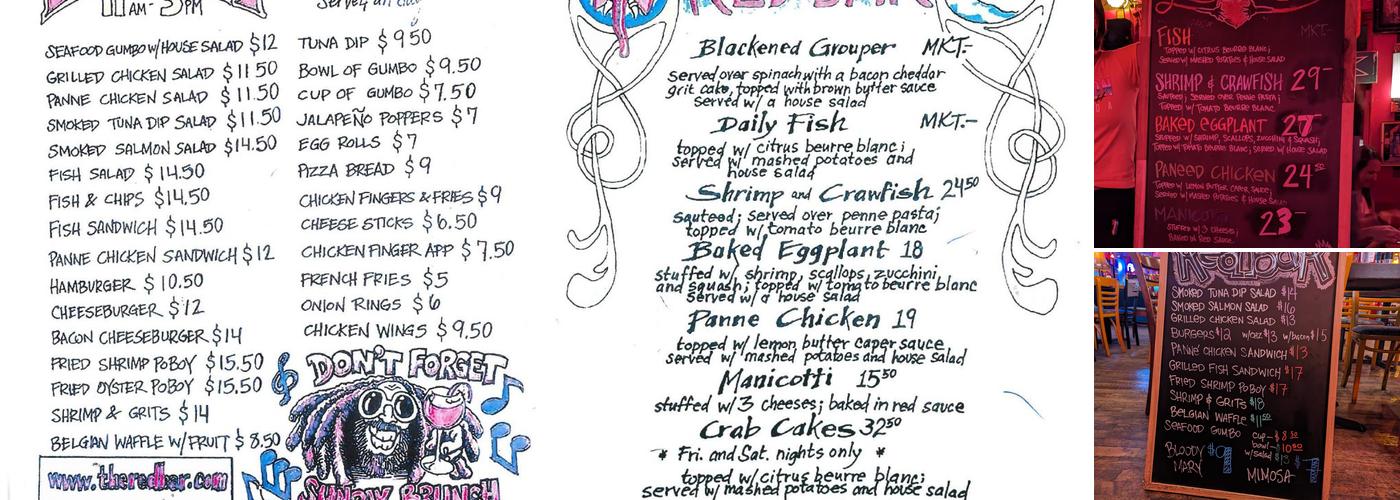 11AM-3PM
SEAFOOD GUMBO W/HOUSE SALAD $12
GRILLED CHICKEN SALAD $11.50
PANNE CHICKEN SALAD $11.50
SMOKED TUNA DIP SALAD $11.50
SMOKED SALMON SALAD $14.50
FISH SALAD $14.50
FISH & CHIPS $14.50
FISH SANDWICH $14.50
PANNE CHICKEN SANDWICH $12
HAMBURGER $10.50
CHEESEBURGER $12
BACON CHEESEBURGER $14
FRIED SHRIMP POBOY $15.50
FRIED OYSTER POBOY $15.50
SHRIMP & GRITS $14
BELGIAN WAFFLE W/FRUIT $8.50
www.theredbar.com
TUNA DIP $950
BOWL OF GUMBO $9.50
CUP OF GUMBO $7.50
JALAPEÑO POPPERS $7
EGG ROLLS $7
PIZZA BREAD $9
CHICKEN FINGERS & FRIES $9
CHEESE STICKS $6.50
CHICKEN FINGER APP $7.50
FRENCH FRIES $5
ONION RINGS $6
CHICKEN WINGS $9.50
DON'T FORGET
SUNDAY BRUNCH
RED BAR
Blackened Grouper MKT.-
served over spinach with a bacon cheddar
grit cake, topped with brown butter sauce
served w/ a house salad
Daily Fish MKT.-
topped w/ citrus beurre blanc;
served w/ mashed potatoes and
house salad
Shrimp and Crawfish 2450
sauteed; served over penne pasta;
topped w/ tomato beurre blanc
Baked Eggplant 18
stuffed w/ shrimp, scallops, zucchini
and squash; topped w/ tomato beurre blanc
served w/ a house salad
Panne Chicken 19
topped w/ lemon butter caper sauce
served w/ mashed potatoes and house salad
Manicotti 1550
stuffed w/ 3 cheeses; baked in red sauce
Crab Cakes 3250
* Fri. and Sat. nights only *
topped w/ citrus beurre blanc;
served w/ mashed potatoes and house salad
FISH MKT-
TOPPED W/ CITRUS BEURRE BLANC;
SERVED W/ MASHED POTATOES & HOUSE SALAD
SHRIMP & CRAWFISH 29-
SAUTEED; SERVED OVER PENNE PASTA;
TOPPED W/ TOMATO BEURRE BLANC
BAKED EGGPLANT 27-
STUFFED W/ SHRIMP, SCALLOPS, ZUCCHINI & SQUASH;
TOPPED W/ TOMATO BEURRE BLANC; SERVED W/ HOUSE SALAD
PANEED CHICKEN 2450
TOPPED W/ LEMON BUTTER CAPER SAUCE;
SERVED W/ MASHED POTATOES & HOUSE SALAD
MANICOTTI 23-
STUFFED W/ 3 CHEESES;
BAKED IN RED SAUCE
RED BAR
SMOKED TUNA DIP SALAD $14
SMOKED SALMON SALAD $16
GRILLED CHICKEN SALAD $13
BURGERS $12 W/CHZ $13 W/BACON $15
PANNE CHICKEN SANDWICH $13
GRILLED FISH SANDWICH $17
FRIED SHRIMP POBOY $17
SHRIMP & GRITS $18
BELGIAN WAFFLE $1150
SEAFOOD GUMBO CUP-$850
bowl-$1050
w/salad
BLOODY MARY
MIMOSA